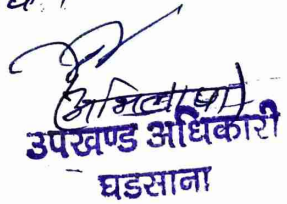 (अभिलाषा)
उपखण्ड अधिकारी
घडसाना